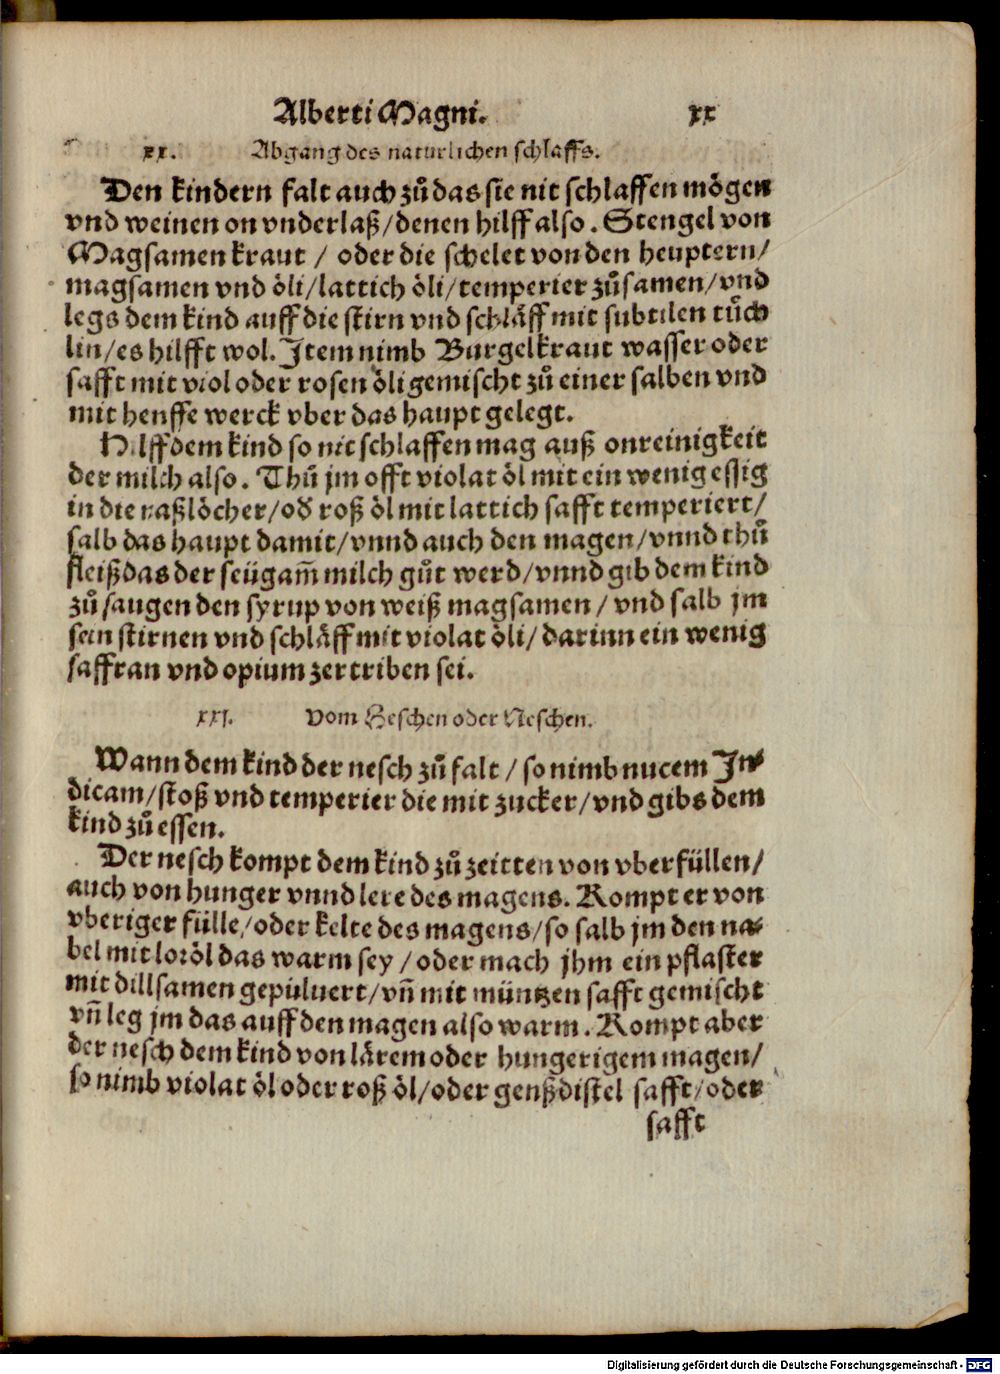 Alberti Magni. xx
xx. Abgang des naturlichen schlaffs.
Den kindern falt auch zů das sie nit schlaffen mögen
vnd weinen on vnderlaß/denen hilff also. Stengel von
Magsamen kraut / oder die schelet von den heuptern/
magsamen vnd öli/lattich öli/temperier zůsamen/vnd
legs dem kind auff die stirn vnd schläff mit subtilen tůch
lin/es hilfft wol. Item nimb Burgelkraut wasser oder
safft mit viol oder rosen öli gemischt zů einer salben vnd
mit henffe werck vber das haupt gelegt.
Hilff dem kind so nit schlaffen mag auß onreinigkeit
der milch also. Thů jm offt violat öl mit ein wenig essig
in die naßlöcher/od roß öl mit lattich safft temperiert/
salb das haupt damit/vnnd auch den magen/vnnd thů
fleiß das der seügam̃ milch gůt werd/vnnd gib dem kind
zů saugen den syrup von weiß magsamen / vnd salb jm
sein stirnen vnd schläff mit violat öli/darinn ein wenig
saffran vnd opium zertriben sei.
xxj. Vom Heschen oder Neschen.
Wann dem kind der nesch zů falt / so nimb nucem In⸗
dicam/stoß vnd temperier die mit zucker/vnd gibs dem
kind zů essen.
Der nesch kompt dem kind zů zeitten von vberfüllen/
auch von hunger vnnd lere des magens. Kompt er von
vberiger fülle/oder kelte des magens/so salb jm den na⸗
bel mit loröl das warm sey / oder mach jhm ein pflaster
mit dillsamen gepuluert/vñ mit müntzen safft gemischt
vñ leg jm das auff den magen also warm. Kompt aber
der nesch dem kind von lärem oder hungerigem magen/
so nimb violat öl oder roß öl/oder genßdistel safft/oder
safft
Digitalisierung gefördert durch die Deutsche Forschungsgemeinschaft - DFG